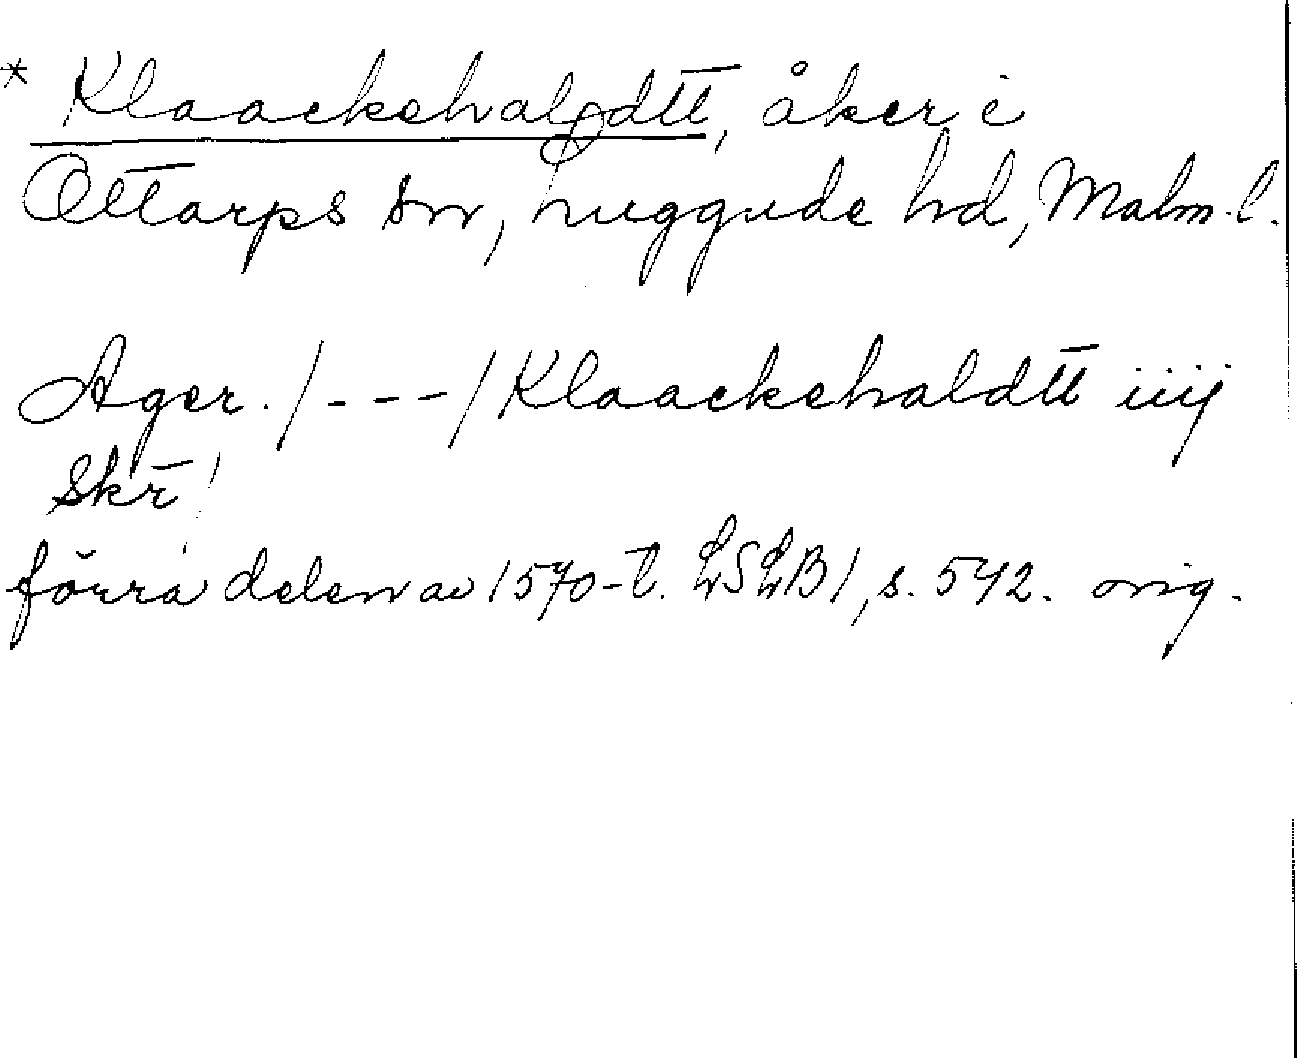 * Klaackehaldtt, åker i
Ottarps sn, Luggude hd, Malm. l.
Ager. /---/ Klaackehaldtt iiij
Skr̄!
förra delen av 1570-t. LSLB 1, s. 542. orig.